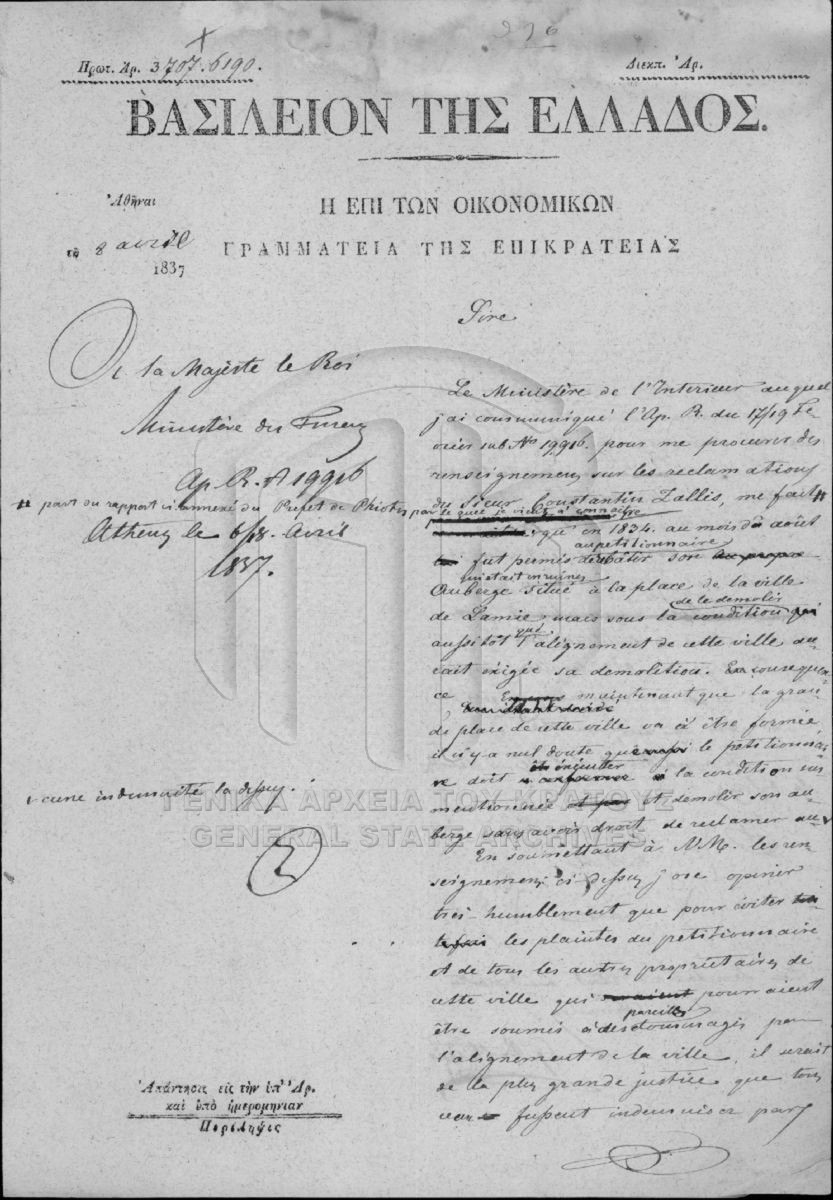 276
Πρωτ. Ἀρ. 3707.6190.
Διεκπ. Ἀρ.
ΒΑΣΙΛΕΙΟΝ ΤΗΣ ΕΛΛΑΔΟΣ.
Ἀθῆναι
τὸ 8 avril
1837
Η ΕΠΙ ΤΩΝ ΟΙΚΟΝΟΜΙΚΩΝ
ΓΡΑΜΜΑΤΕΙΑ ΤΗΣ ΕΠΙΚΡΑΤΕΙΑΣ
à sa Majesté le Roi
Ministère des
Ap. R. 19916
# part du rapport ci annexé du Prefet de
Athenes le 6/18. Avril
1837.
aucune indemnité la dessus.
2
Ἀπάντησις εἰς τὴν ὑπ' Ἀρ.
καὶ ὑπὸ ἡμερομηνίαν
Περίληψις
Sire
Le Ministère de l'Interieur auquel
j'ai communiqué l'Ap. R. du 17/19 Fe
vrier sub No 19916. pour me procurer des
renseignemens sur les reclamations
du Sieur Constantin Zallis, me fait #
par ce que je viens à connaître
que en 1834. au mois du août
au petitionnaire
fut permis de rebâtir son
qui etait en ruines
Auberge situé à la place de la ville
de le demolir
de Lamie, mais sous la condition
aussitôt que l'alignement de cette ville au
rait exigée sa demolition. En consequen
ce maintenant que la gran
de place de cette ville va à être formée
il n'y a nul doute que le petitionnai
executer
re doit la condition sus
mentionnée et demolir son au
berge sans avoir droit de reclamer au
En soumettant à V.M. les ren
seignemens ci dessus j'ose opiner
tres-humblement que pour éviter
les plaintes du petitionnaire
et de tous les autres proprietaires de
cette ville qui pourraient
pareilles
être soumis à des dommages par
l'alignement de la ville, il serait
de la plus grande justice que tous
fussent indemnisez par
ΓΕΝΙΚΑ ΑΡΧΕΙΑ ΤΟΥ ΚΡΑΤΟΥΣ
GENERAL STATE ARCHIVES